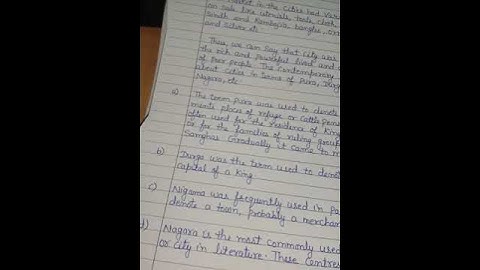 in the cities had vari
on sale like utensils, tools, cloth,
and Kamboja, bangles, or
and silver etc
Thus, we can say that city was
the rich and powerful lived and
of poor people. The contemporary
about cities in terms of pura, durg
Nagara, etc
a) The term pura was used to denote
places of refuge or cattle pens
often used for the residence of King
or for the families of ruling group
Sanghas. Gradually it came to m
b) Durga was the term used to denot
capital of a king
c) Nigama was frequently used in Pa
denote a town, probably a merchan
d) Nagara is the most commonly used
or city in literature. These Centres